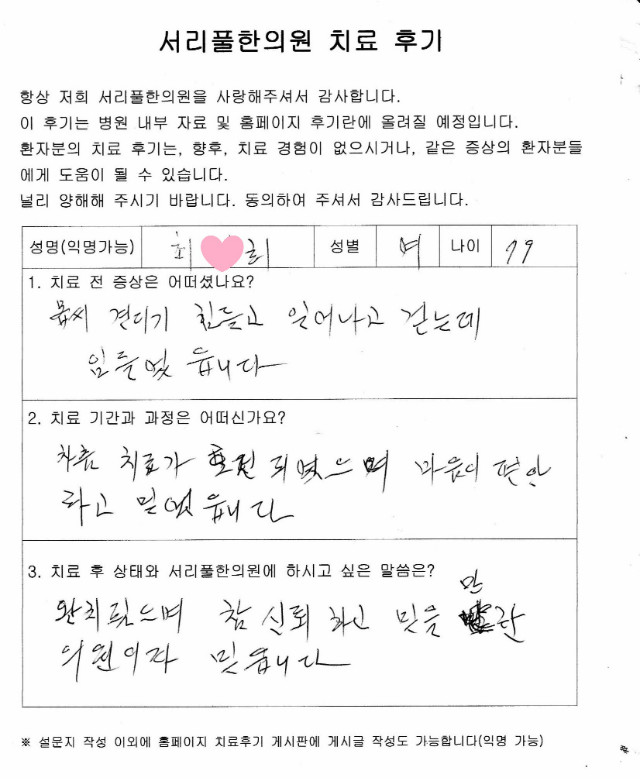 서리풀한의원 치료 후기
항상 저희 서리풀한의원을 사랑해주셔서 감사합니다.
이 후기는 병원 내부 자료 및 홈페이지 후기란에 올려질 예정입니다.
환자분의 치료 후기는, 향후, 치료 경험이 없으시거나, 같은 증상의 환자분들
에게 도움이 될 수 있습니다.
널리 양해해 주시기 바랍니다. 동의하여 주셔서 감사드립니다.
성명(익명가능) 최 희 성별 여 나이 79
1. 치료 전 증상은 어떠셨나요?
몹씨 견디기 힘들고 일어나고 걷는데
힘들었읍니다
2. 치료 기간과 과정은 어떠신가요?
차츰 치료가 호전 되었으며 마음이 편안
하고 믿었읍니다
3. 치료 후 상태와 서리풀한의원에 하시고 싶은 말씀은?
완치됬으며 참 신뢰 하고 믿을 만 한
의원이라 믿읍니다
※ 설문지 작성 이외에 홈페이지 치료후기 게시판에 게시글 작성도 가능합니다(익명 가능)